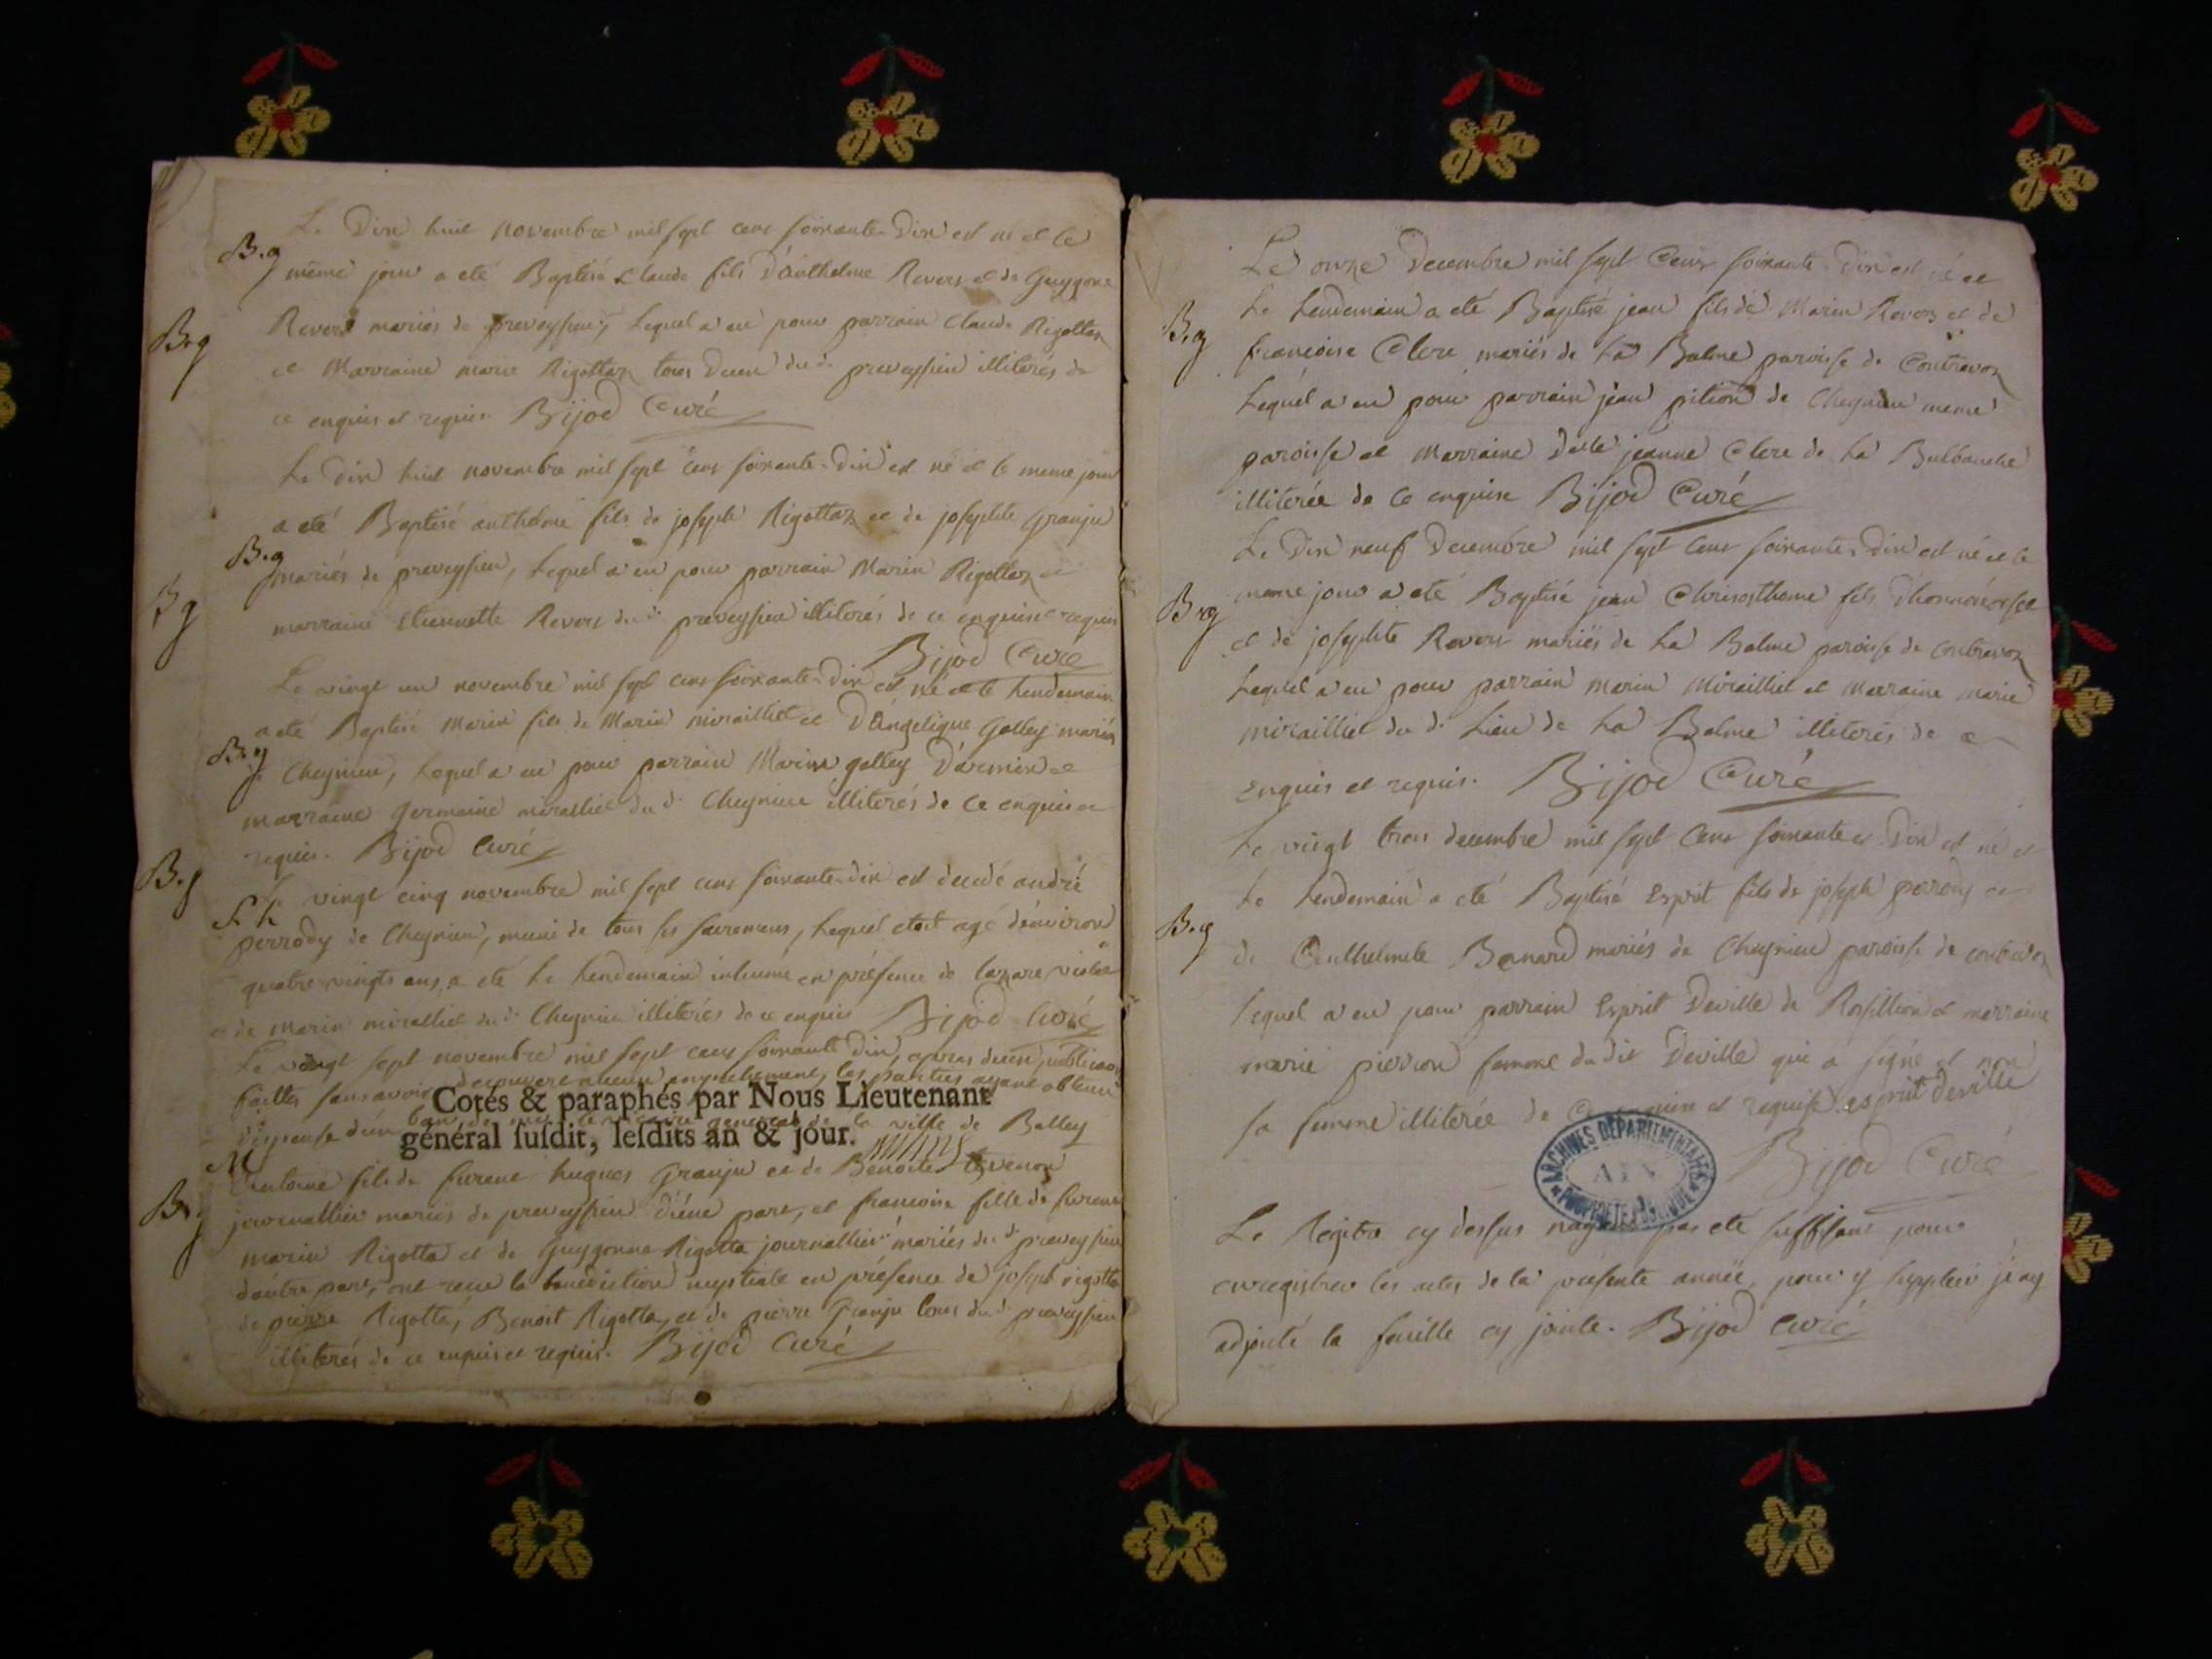 Le Dix huit novembre mil sept cens soixante-Dix est né et le
B.g même jour a eté Baptisé Claude fils D'Anthelme Revers et de Guygone
Revers mariés de preveyssieu, Lequel a eu pour parrain Claude Rigottaz
B.g
et Marraine marie Rigottaz tous Deux du dt preveyssieu illiterés de
ce enquis et requis. Bijod Curé
Le dix huit novembre mil sept cens soixante-Dix est né et le meme jour
a eté Baptisé anthelme fils de joseph Rigottaz et de josephte Granju
B.g mariés de preveyssieu, Lequel a eu pour parrain Marin Rigottaz et
B g
marraine Etiennette Revers du dt preveyssieu illiterés de ce enquis et requis
Bijod Curé
Le vingt un novembre mil sept cens soixante-Dix est né et le Lendemain
a eté Baptisé Marin fils de Marin miraillet et D'Angelique Galley mariés
B.g de Cheynieu, Lequel a eu pour parrain Marin galley D'armix et
marraine Germaine miraillet du dt Cheynieu illiterés de ce enquis et
requis. Bijod Curé
B.g
Le vingt cinq novembre mil sept cens soixante-dix est decedé andré
S. h
perrody de Cheynieu, muni de tous ses sacremens, Lequel etoit agé denviron
quatre vingts ans, a eté le Lendemain inhumé en présence de lazare
et de Marin miraillet du dt Cheynieu illiterés de ce enquis Bijod Curé
Le vingt sept novembre mil sept cens soixante Dix, apres deux publications
faittes sans avoir decouvert aucun empechement, les parties ayant obtenu
Cotés & paraphés par Nous Lieutenant
dispense d'un ban de general de la ville de Belley
général suſdit, leſdits an & jour.
M
Antoine fils de furent hugues Granju et de Benoite thevenon
B.g
journallier mariés de preveyssieu d'une part, et francoise fille de furent
marin Rigotta et de Guygonne Rigotta journallier mariés du dt preveyssieu
dautre part, ont recu la benediction nuptiale en présence de joseph rigotta
de pierre Rigotta, Benoit Rigotta, et de pierre Granju tous du dt preveyssieu
illiterés de ce enquis et requis. Bijod Curé
Le onze Decembre mil sept Cens soixante-Dix est né et
Le Lendemain a eté Baptisé jean fils de Marin Revers et de
B.g
francoise Clerc mariés de La Balme paroisse de Contrevoz
Lequel a eu pour parrain jean pition de Cheynieu meme
paroisse et Marraine Delle jeanne Clerc de La Balbauche
illiterée de Ce enquise Bijod Curé
Le Dix neuf Decembre mil sept Cens soixante-Dix est né et le
B.g
meme jour a eté Baptisé jean Chrisosthome fils d'honnoré
et de josephte Revers mariés de La Balme paroisse de Contrevoz
Lequel a eu pour parrain Marin Miraillet et Marraine Marie
miraillet du dt Lieu de La Balme illiterés de ce
enquis et requis. Bijod Curé
Le vingt trois decembre mil sept Cens soixante et Dix est né et
Le Lendemain a eté Baptisé Esprit fils de joseph perrody et
B.g
de Anthelmete Bonard mariés de Cheynieu paroisse de contrevoz
Lequel a eu pour parrain Esprit Deville de Rossillion et marraine
marie pierron femme du dit Deville qui a signé et non
sa femme illiterée de Ce enquise et requise. esprit deville
ARCHIVES DÉPARTEMENTALES
AIN
PROPRIÉTÉ PUBLIQUE
Bijod Curé
Le Regitre cy dessus nayant pas eté suffisant pour
enregistrer les actes de la présente année, pour y suppleer j'ay
adjouté la feuille cy jointe. Bijod Curé